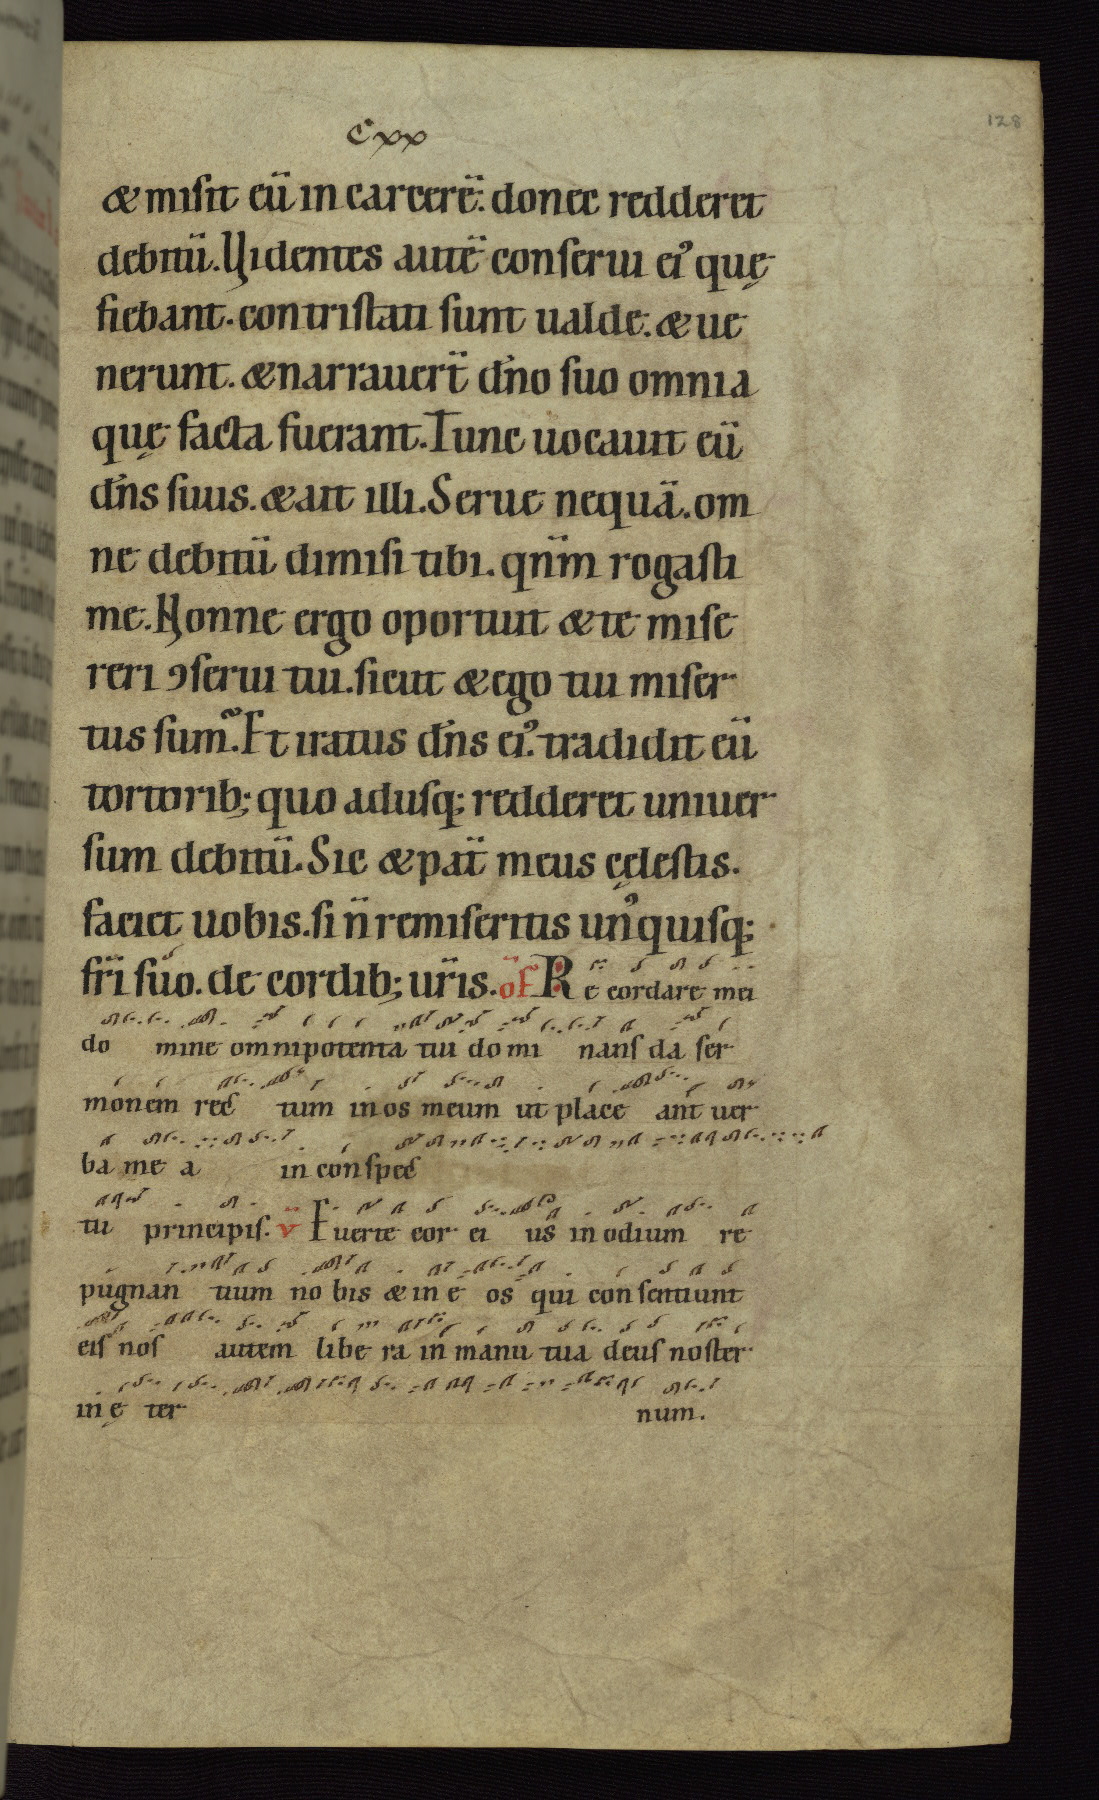 Cxx
128
& misit eū in carcerē. donec redderet
debitū. Videntes autē conserui ei᾽ quę
fiebant. contristati sunt ualde. & ue
nerunt. & narrauert̄ dn̄o suo omnia
quę facta fuerant. Tunc uocauit eū
dn̄s suus. & ait illi. Serue nequā. om
ne debitū dimisi tibi. qn̄m rogasti
me. Nonne ergo oportuit & te mise
reri ꝯserui tui. sicut & ego tui miser
tus sum᷒. Et iratus dn̄s ei᾽. tradidit eū
tortorib; quo adusq; redderet uniuer
sum debitū. Sic & pat̄ meus cęlestis.
faciet uobis. si n̄ remiseritis un᾽quisq;
fr̄i suo. de cordib; ur̄is. of̄ Re cordare mei
do mine omnipotenta tui domi nans da ser
monem rec tum in os meum ut place ant uer
ba me a in conspec
tu principis. v̄ Euerte cor ei us in odium re
pugnan tium no bis & in e os qui consentiunt
eis nos autem libe ra in manu tua deus noster
in ę ter num.